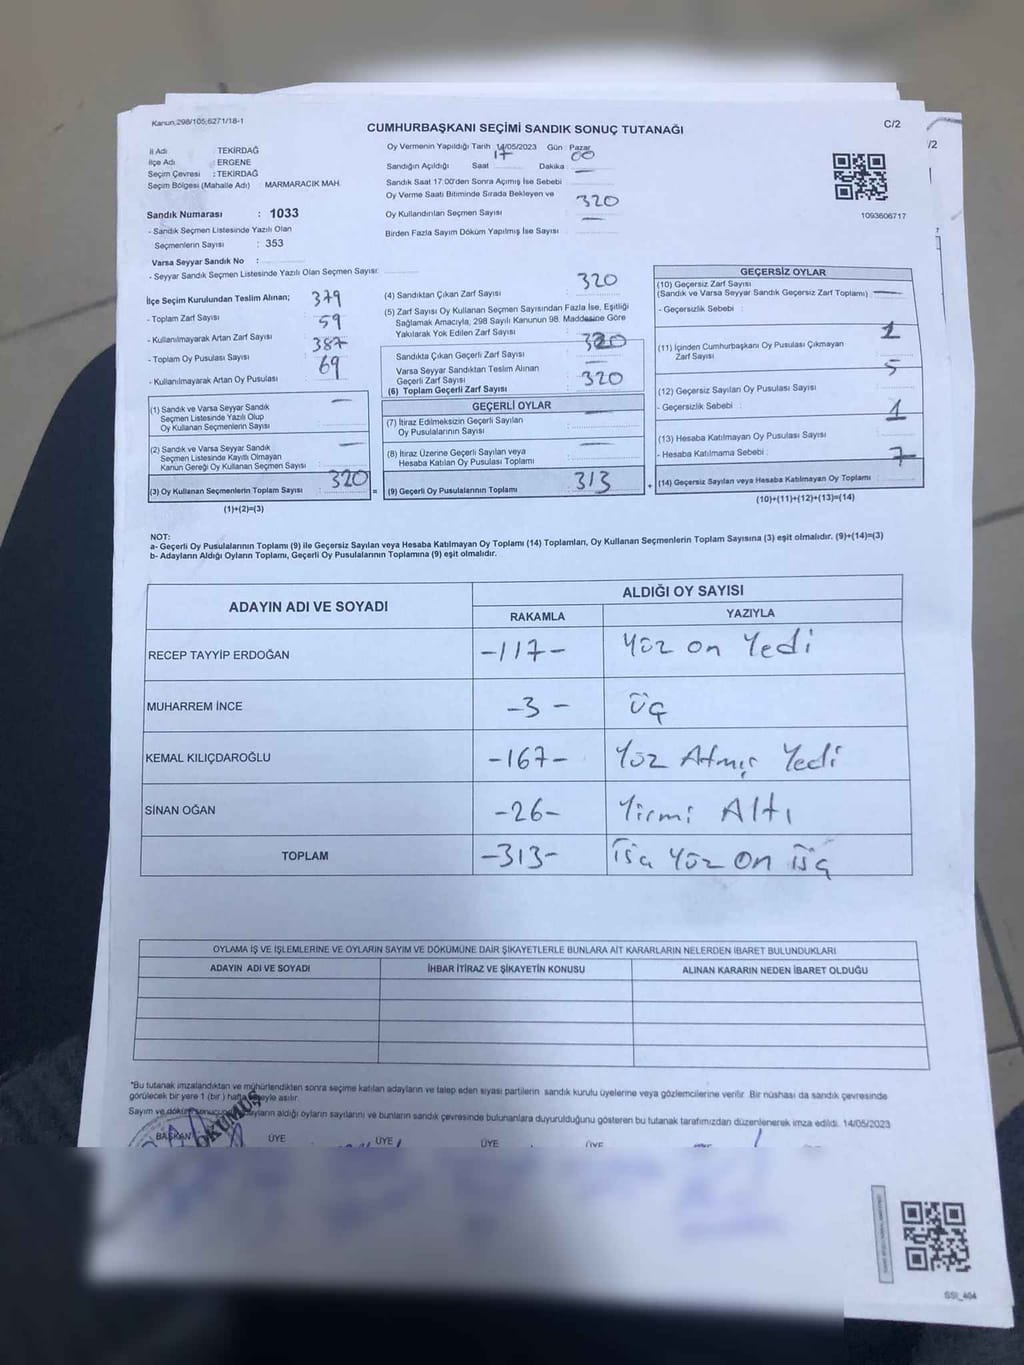 Kanun,298/105,6271/18-1
C/2
/2
CUMHURBAŞKANI SEÇİMİ SANDIK SONUÇ TUTANAĞI
İl Adı : TEKİRDAĞ
İlçe Adı : ERGENE
Seçim Çevresi : TEKİRDAĞ
Seçim Bölgesi (Mahalle Adı) : MARMARACIK MAH.
Sandık Numarası : 1033
- Sandık Seçmen Listesinde Yazılı Olan
Seçmenlerin Sayısı : 353
Varsa Seyyar Sandık No :
- Seyyar Sandık Seçmen Listesinde Yazılı Olan Seçmen Sayısı:
Oy Vermenin Yapıldığı Tarih 14/05/2023 Gün : Pazar
Sandığın Açıldığı Saat 17 Dakika 00
Sandık Saat 17:00'den Sonra Açımış İse Sebebi
Oy Verme Saati Bitiminde Sırada Bekleyen ve
Oy Kullandırılan Seçmen Sayısı 320
Birden Fazla Sayım Döküm Yapılmış İse Sayısı
1093606717
İlçe Seçim Kurulundan Teslim Alınan;
- Toplam Zarf Sayısı 379
- Kullanılmayarak Artan Zarf Sayısı 59
- Toplam Oy Pusulası Sayısı 387
- Kullanılmayarak Artan Oy Pusulası 69
(1) Sandık ve Varsa Seyyar Sandık
Seçmen Listesinde Yazılı Olup
Oy Kullanan Seçmenlerin Sayısı
(2) Sandık ve Varsa Seyyar Sandık
Seçmen Listesinde Kayıtlı Olmayan
Kanun Gereği Oy Kullanan Seçmen Sayısı
(3) Oy Kullanan Seçmenlerin Toplam Sayısı 320 =
(1)+(2)=(3)
(4) Sandıktan Çıkan Zarf Sayısı 320
(5) Zarf Sayısı Oy Kullanan Seçmen Sayısından Fazla İse, Eşitliği
Sağlamak Amacıyla, 298 Sayılı Kanunun 98. Maddesine Göre
Yakılarak Yok Edilen Zarf Sayısı
Sandıkta Çıkan Geçerli Zarf Sayısı 320
Varsa Seyyar Sandıktan Teslim Alınan
Geçerli Zarf Sayısı
(6) Toplam Geçerli Zarf Sayısı 320
GEÇERLİ OYLAR
(7) İtiraz Edilmeksizin Geçerli Sayılan
Oy Pusulalarının Sayısı
(8) İtiraz Üzerine Geçerli Sayılan veya
Hesaba Katılan Oy Pusulası Toplamı
(9) Geçerli Oy Pusulalarının Toplamı 313 +
GEÇERSİZ OYLAR
(10) Geçersiz Zarf Sayısı
(Sandık ve Varsa Seyyar Sandık Geçersiz Zarf Toplamı)
- Geçersizlik Sebebi :
(11) İçinden Cumhurbaşkanı Oy Pusulası Çıkmayan
Zarf Sayısı 1
(12) Geçersiz Sayılan Oy Pusulası Sayısı 5
- Geçersizlik Sebebi :
(13) Hesaba Katılmayan Oy Pusulası Sayısı 1
- Hesaba Katılmama Sebebi :
(14) Geçersiz Sayılan veya Hesaba Katılmayan Oy Toplamı 7
(10)+(11)+(12)+(13)=(14)
NOT:
a- Geçerli Oy Pusulalarının Toplamı (9) ile Geçersiz Sayılan veya Hesaba Katılmayan Oy Toplamı (14) Toplamları, Oy Kullanan Seçmenlerin Toplam Sayısına (3) eşit olmalıdır. (9)+(14)=(3)
b- Adayların Aldığı Oyların Toplamı, Geçerli Oy Pusulalarının Toplamına (9) eşit olmalıdır.
ADAYIN ADI VE SOYADI ALDIĞI OY SAYISI
RAKAMLA YAZIYLA
RECEP TAYYİP ERDOĞAN -117- Yüz on Yedi
MUHARREM İNCE -3- Üç
KEMAL KILIÇDAROĞLU -167- Yüz Atmış Yedi
SİNAN OĞAN -26- Yirmi Altı
TOPLAM -313- Üç Yüz On Üç
OYLAMA İŞ VE İŞLEMLERİNE VE OYLARIN SAYIM VE DÖKÜMÜNE DAİR ŞİKAYETLERLE BUNLARA AİT KARARLARIN NELERDEN İBARET BULUNDUKLARI
ADAYIN ADI VE SOYADI İHBAR İTİRAZ VE ŞİKAYETİN KONUSU ALINAN KARARIN NEDEN İBARET OLDUĞU
"Bu tutanak imzalandıktan ve mühürlendikten sonra seçime katılan adayların ve talep eden siyasi partilerin sandık kurulu üyelerine veya gözlemcilerine verilir. Bir nüshası da sandık çevresinde
görülecek bir yere 1 (bir) hafta asılır.
Sayım ve döküm aldığı oyların sayılarını ve bunların sandık çevresinde bulunanlara duyurulduğunu gösteren bu tutanak tarafımızdan düzenlenerek imza edildi. 14/05/2023
BAŞKAN ÜYE ÜYE ÜYE ÜYE
SSI_404